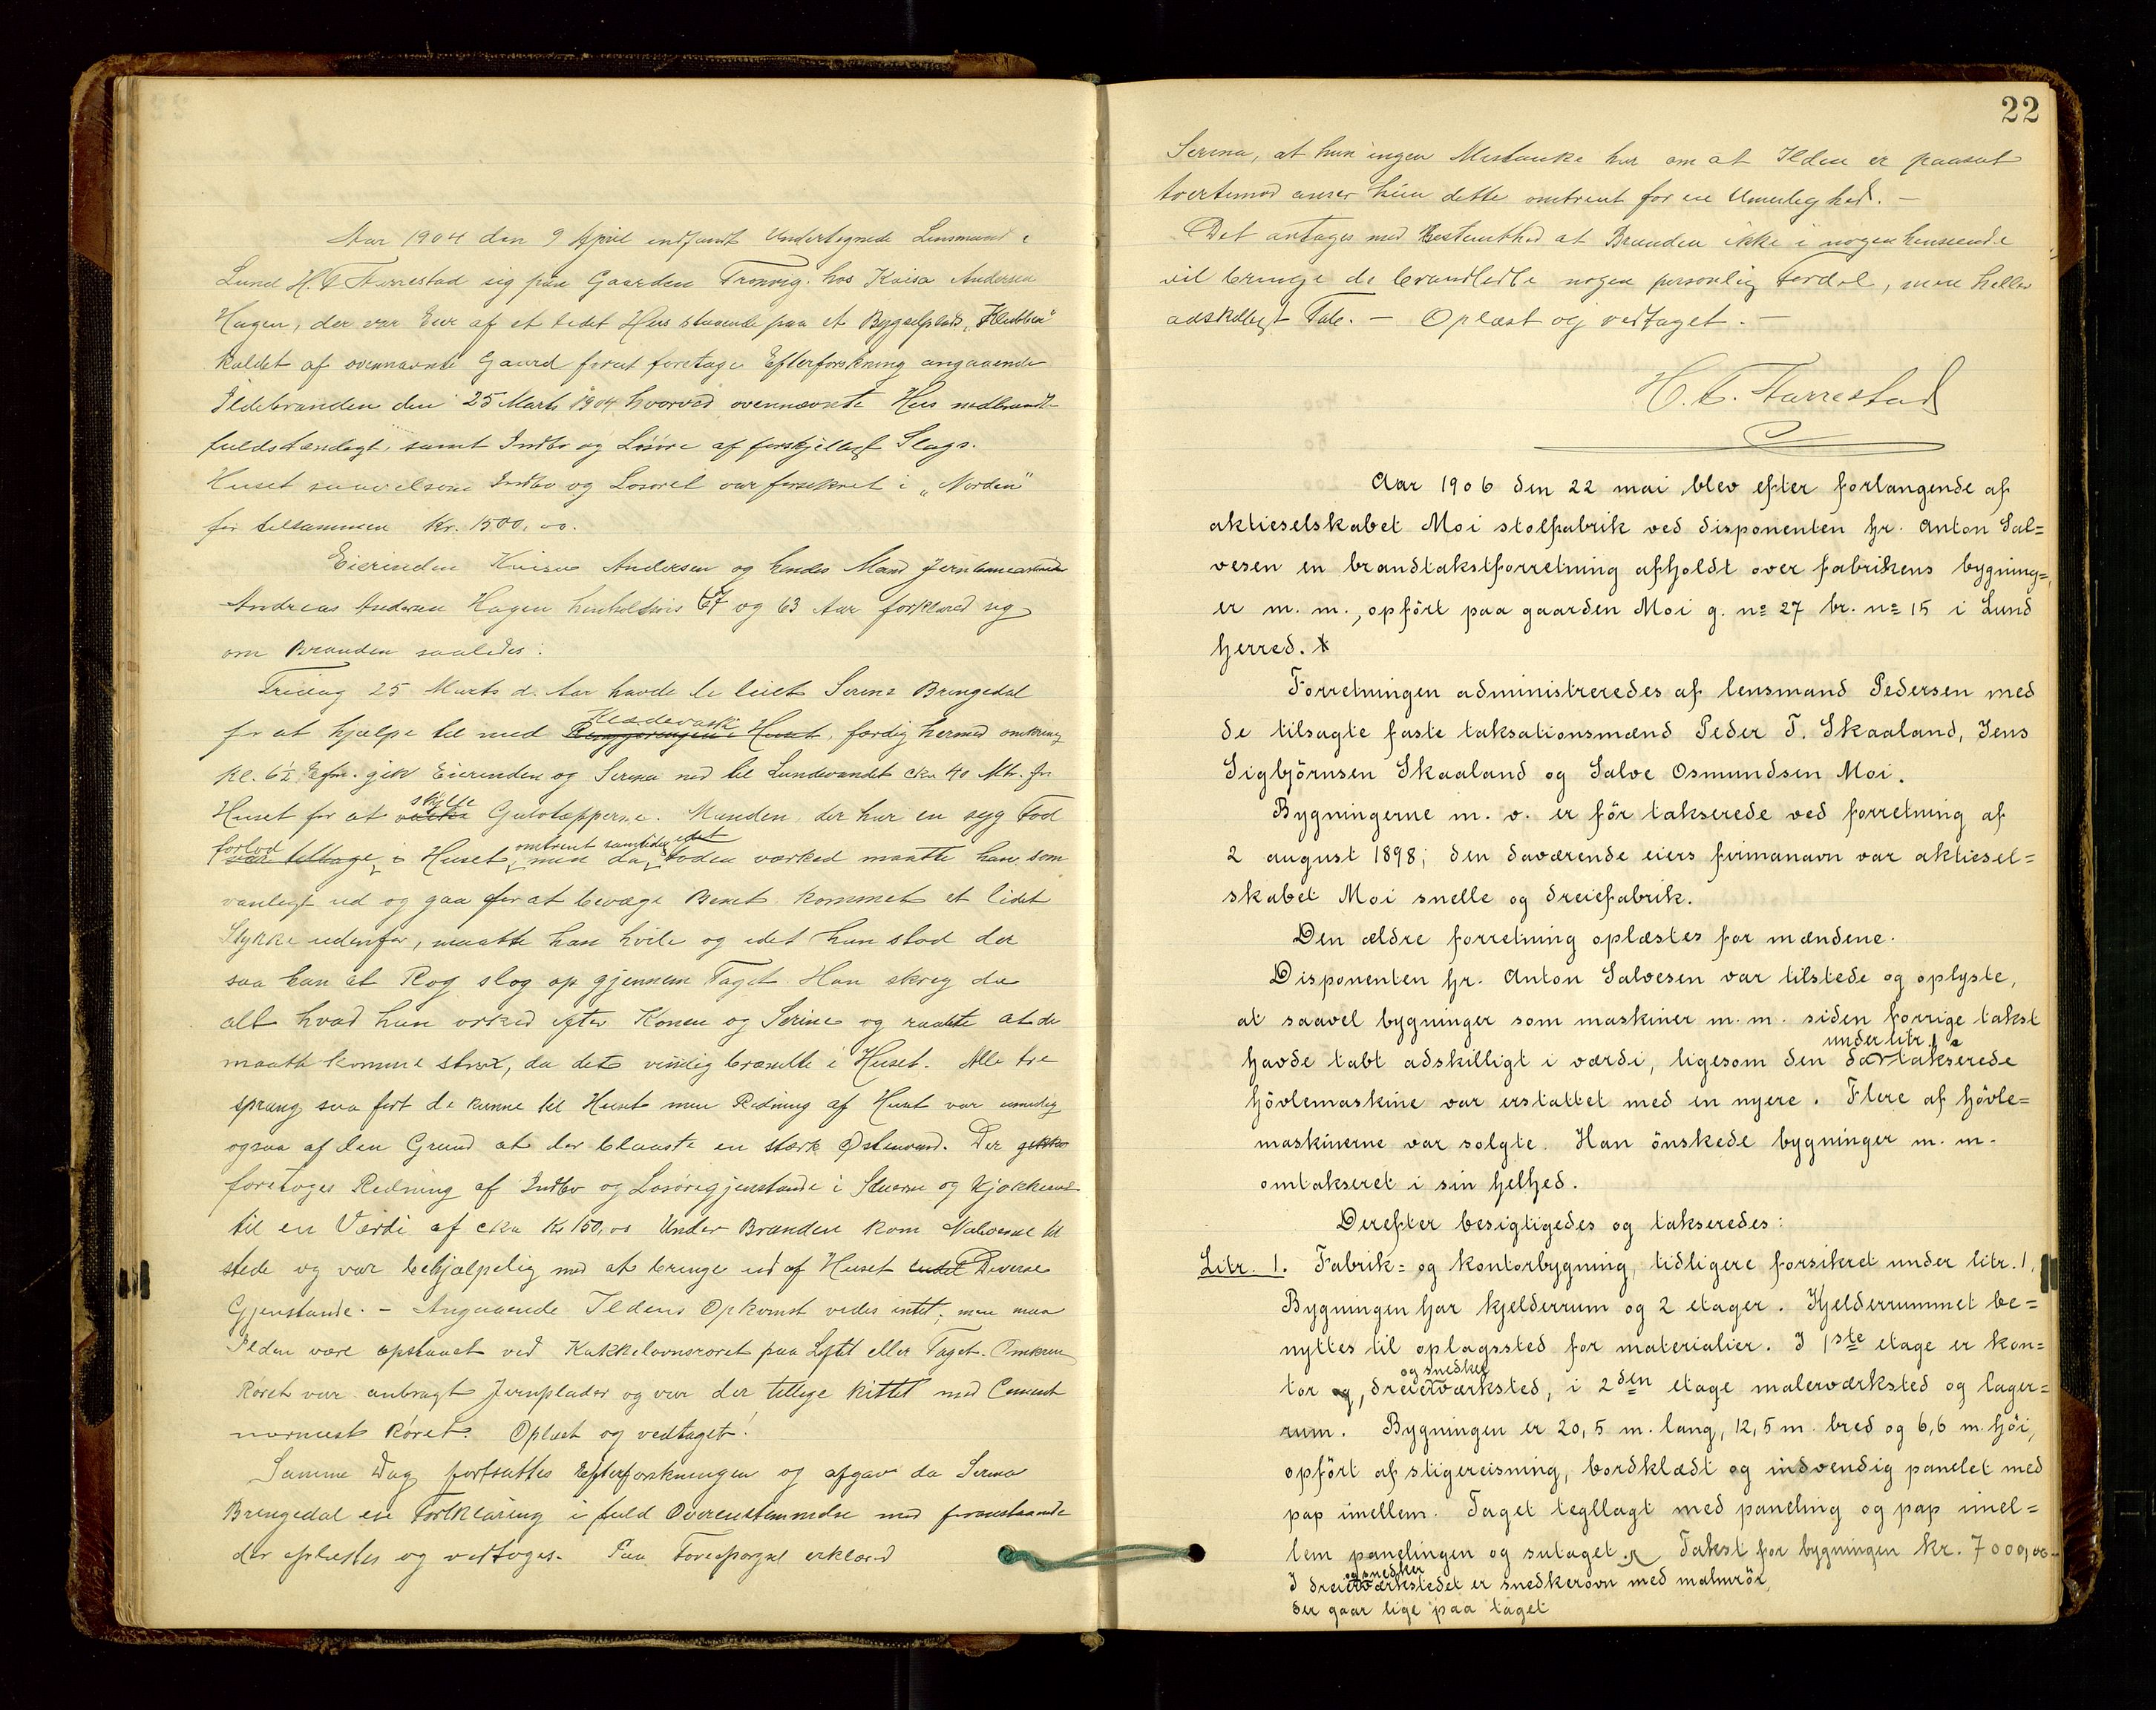 Aar 1904 den 9 April indfandt Undertegnede Lensmand i
Lund H. C. Storrestad sig paa Gaarden Tronvig hos Andersen
Hagen, der var Eier af et lidet Hus staaende paa et Bygselplads "Klubben"
kaldet af ovennævnte Gaard forat foretage Efterforskning angaaende
Ildebranden den 25 Marts 1904 hvorved ovennævnte Hus nedbrændte
fuldstændigt, samt Indbo og Løsøre af forskjelligt Slags.
Huset saavelsom Indbo og Løsøret var forsikret i "Norden"
for tilsammen Kr. 1500,00.
Eierinden Andersen og hendes Mand
Andreas Andersen Hagen henholdsvis 67 og 63 Aar forklared sig
om Branden saaledes:
Fredag 25 Marts d. Aar havde de leiet Serine Bringedal
for at hjælpe til med Rengjøringen i Huset Klædevask, færdig hermed omkring
Kl. 6½ Efm. gik Eierinden og Serina ned til Lundevandet cka 40 Mtr. fra
Huset for at vaske skylle Gulvtæpperne. Manden, der har en syg Fod
var tilbage i forlod Huset omtrent samtidig idet men da Foden værked maatte han som
vanligt ud og gaa for at bevæge Benet. Kommet et lidet
Stykke udenfor, maatte han hvile og idet han stod der
saa han at Røg slog op gjennem Taget. Han skreg da
alt hvad han orked efter Konen og Serine og raabte at de
maatte komme strax, da det brændte i Huset. Alle tre
sprang saa fort de kunne til Huset men Redning af Huset var umulig
ogsaa af den Grund at der blaaste en stærk Østenvind. Der
foretoges Redning af Indbo og Løsøregjenstande i Stuerne og Kjøkkenet
til en Verdi af cka Kr 150,00 Under Branden kom Naboerne til
stede og var behjælpelig med at bringe ud af Huset Diverse
Gjenstande. – Angaaende Ildens Opkomst vedes intet, men maa
Ilden være opstaaet ved Kakkelovnsrøret paa Loftet eller Taget. Omkring
Røret var anbragt Jernplader og var der tillige kittet med Cement
nærmest Røret. Oplæst og vedtaget!
Samme Dag fortsattes Efterforskningen og afgav da Serina
Bringedal en Forklaring i fuld Overensstemmelse med foranstaaende
der oplæstes og vedtoges. Paa Forespørgsel erklæred
22
Serina, at hun ingen Mistanke har om at Ilden er paasat
tvertimod anser hun dette omtrent for en Umulighed. –
Det antages med Bestemthed at Branden ikke i nogen henseende
vil bringe de brandlidte nogen personlig Fordel, men heller
adskilligt Tab. – Oplæst og vedtaget. –
H. C. Storrestad
Aar 1906 den 22 mai blev efter forlangende af
aktieselskabet Moi stolfabrik ved disponenten hr. Anton Sal=
vesen en brandtakstforretning afholdt over fabrikens bygning=
er m. m., opført paa gaarden Moi g. nº 27 br. nº 15 i Lund
herred.
Forretningen administreredes af lensmand Pedersen med
de tilsagte faste taksationsmænd Peder T. Skaaland, Jens
Sigbjørnsen Skaaland og Salve Osmundsen Moi.
Bygningerne m. v. er før takserede ved forretning af
2 august 1898; den daværende eiers firmanavn var aktiesel=
skabet Moi snelle og dreiefabrik.
Den ældre forretning oplæstes for mændene.
Disponenten hr. Anton Salvesen var tilstede og oplyste,
at saavel bygninger som maskiner m. m. siden forrige takst
havde tabt adskilligt i værdi, ligesom den da under litr. 1 a takserede
høvlemaskine var erstattet med en nyere. Flere af høvle=
maskinerne var solgte. Han ønskede bygninger m. m.
omtakseret i sin helhed.
Derefter besigtigedes og takseredes:
Litr. 1. Fabrik= og kontorbygning, tidligere forsikret under litr. 1,
Bygningen har kjelderrum og 2 etager. Kjelderrummet be=
nyttes til oplagssted for materialier. I 1ste etage er kon=
tor og, dreier og snedker værksted, i 2den etage malerværksted og lager=
rum. Bygningen er 20,5 m. lang, 12,5 m. bred og 6,6 m. høi,
opført af stigereisning, bordklædt og indvendig panelet med
pap imellem. Taget tegllagt med paneling og pap imel=
lem panelingen og sutaget. Takst for bygningen kr. 7000,00
I dreier og snedker værkstedet er snedkerovn med malmrør,
der gaar lige paa taget